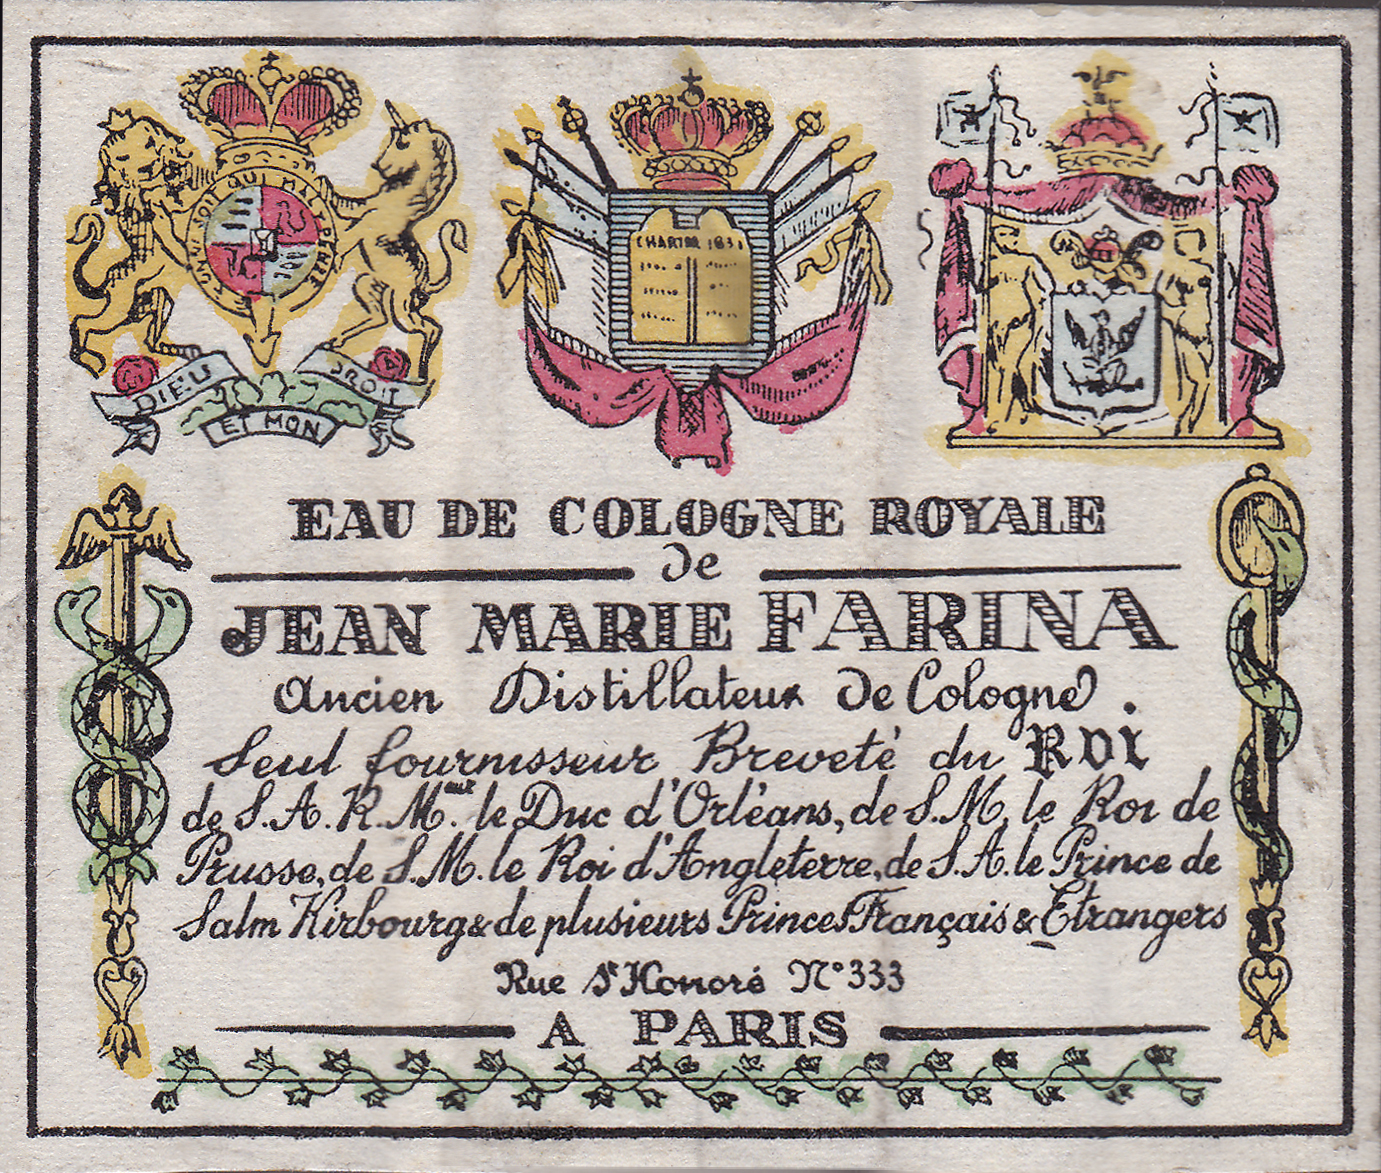 HONI SOIT QUI MAL Y PENSE
DIEU
ET MON
DROIT
CHARTE 1831
EAU DE COLOGNE ROYALE
de
JEAN MARIE FARINA
Ancien Distillateur de Cologne.
Seul fournisseur Breveté du ROI
de S.A.R. M.eur le Duc d'Orléans, de S.M. le Roi de
Prusse, de S.M. le Roi d'Angleterre, de S.A. le Prince de
Salm Kirbourg & de plusieurs Princes Français & Etrangers
Rue St Honoré N° 333
A PARIS